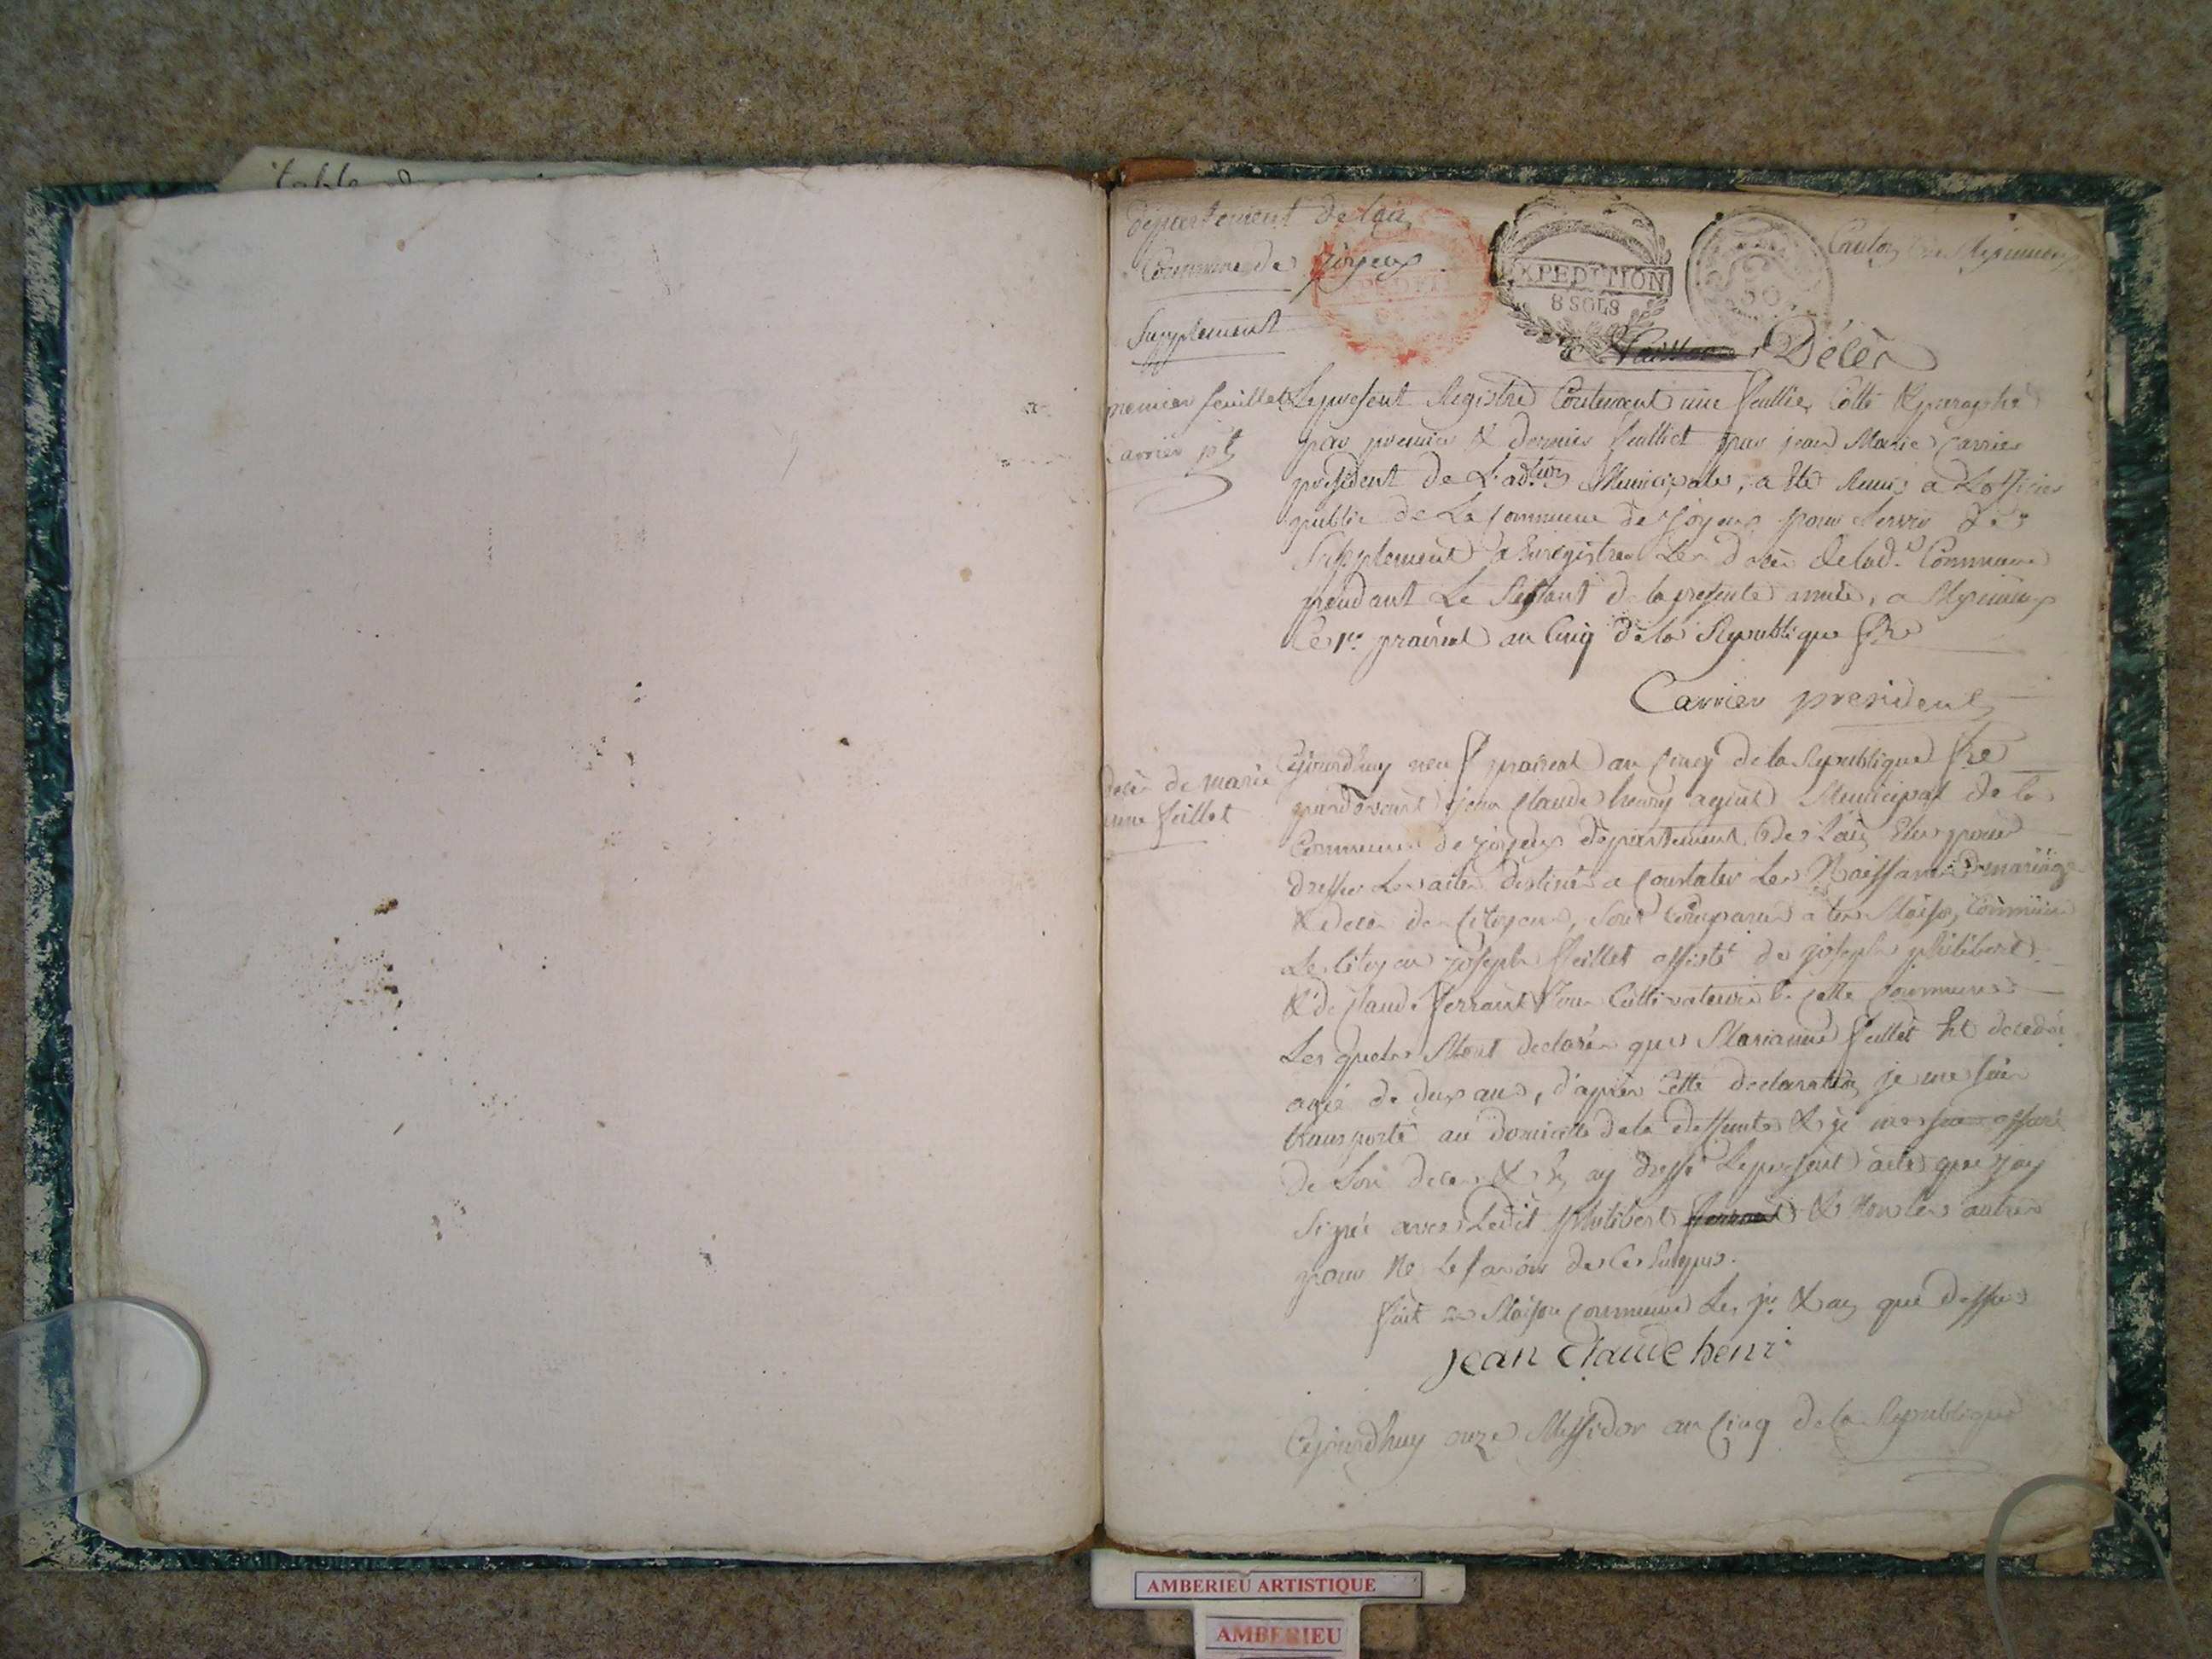 table
Département de lain
Commune de joyeux
Canton de Meximieux
EXPEDITION
8 SOLS
50
Supplement
Décès
premier feuillet
Carrier pt
Le present Registre Contenant une feullie, Cotté & paraphé
par premier & dernier feulliet par jean Marie Carrier
président de L'ad.tion Municipale, a Eté Remis a Lofficier
public de La Commune de joyeux pour Servir de
Supplement a Enregistrer Les décès de lad.e Commune
pendant Le Restant de la presente année, a Meximieux
Le 1er prairial an Cinq de la Republique fse
Carrier president
decès de marie
anne feillet
Cejourdhuy neuf prairial an Cinq de la Republique fse
pardevant jean Claude henry agent Municipal de la
Commune de joyeux département de Lain Elu pour
dresser Les actes destinés a Constater Les Naissances mariages
& décès des Citoyens, Sont Comparus a la Maison Commune
Le Citoyen joseph feillet assisté de joseph philibert
& de Claude ferrant tous Cultivateurs de cette Commune
Les quels Mont declarés que Marianne feillet Est decedée
agée de deux ans, d'après Cette declaration je me suis
transporté au domicille de la deffunte & je me suis assuré
de Son décès & En ay dressé Le present acte que jay
Signé avec Ledit philibert & Non les autres
pour Ne le savoir de ce Enquis.
fait En Maison Commune Les jr & an que dessus
jean Claude henri
Cejourdhuy onze Messidor an Cinq de la Republique
AMBERIEU ARTISTIQUE
AMBERIEU